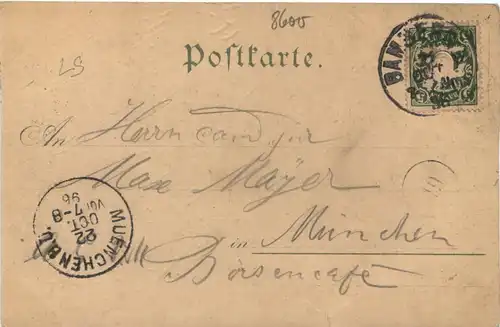 8600
Postkarte.
LS
BAM
An Herrn
Max Mayer
in München
Börsencafé
MUENCHEN B.U.
22
OCT.
VM 7-8
96